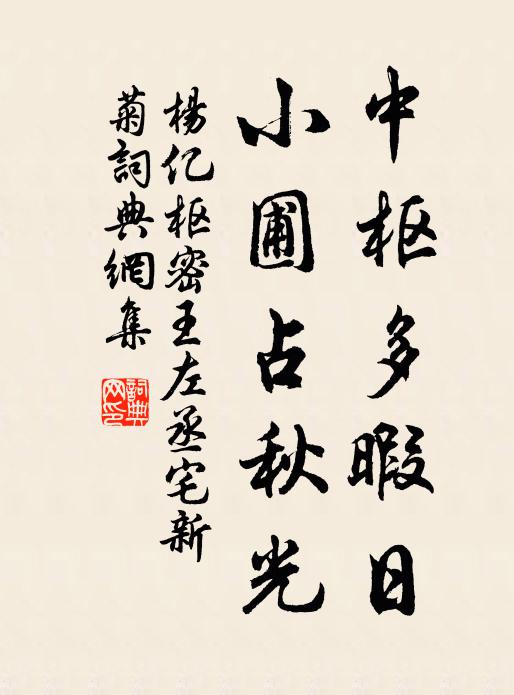 中枢多暇日
小圃占秋光
楊亿枢密王左丞宅新
菊詞典網集
詞典
网印